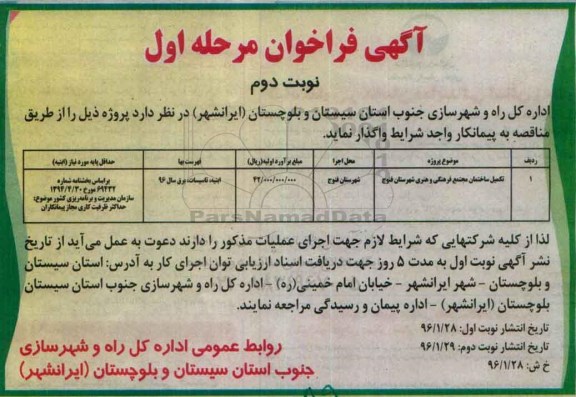 آگهی فراخوان مرحله اول
نوبت دوم
اداره کل راه و شهرسازی جنوب استان سیستان و بلوچستان (ایرانشهر) در نظر دارد پروژه ذیل را از طریق
مناقصه به پیمانکار واجد شرایط واگذار نماید.
ردیف موضوع پروژه محل اجرا مبلغ برآورد اولیه(ریال) فهرست بها حداقل پایه مورد نیاز (ابنیه)
۱ تکمیل ساختمان مجتمع فرهنگی و هنری شهرستان فنوج شهرستان فنوج ۴۲/۰۰۰/۰۰۰/۰۰۰ ابنیه، تاسیسات، برق سال ۹۶ براساس بخشنامه شماره
۶۹۴۳۲ مورخ ۱۳۹۴/۴/۳۰
سازمان مدیریت و برنامه‌ریزی کشور موضوع:
حداکثر ظرفیت کاری مجاز پیمانکاران
ParsNamadData
لذا از کلیه شرکتهایی که شرایط لازم جهت اجرای عملیات مذکور را دارند دعوت به عمل می‌آید از تاریخ
نشر آگهی نوبت اول به مدت ۵ روز جهت دریافت اسناد ارزیابی توان اجرای کار به آدرس: استان سیستان
و بلوچستان - شهر ایرانشهر - خیابان امام خمینی(ره) - اداره کل راه و شهرسازی جنوب استان سیستان
بلوچستان (ایرانشهر) - اداره پیمان و رسیدگی مراجعه نمایند.
تاریخ انتشار نوبت اول: ۹۶/۱/۲۸
تاریخ انتشار نوبت دوم: ۹۶/۱/۲۹
خ ش: ۹۶/۱/۲۸
روابط عمومی اداره کل راه و شهرسازی
جنوب استان سیستان و بلوچستان (ایرانشهر)